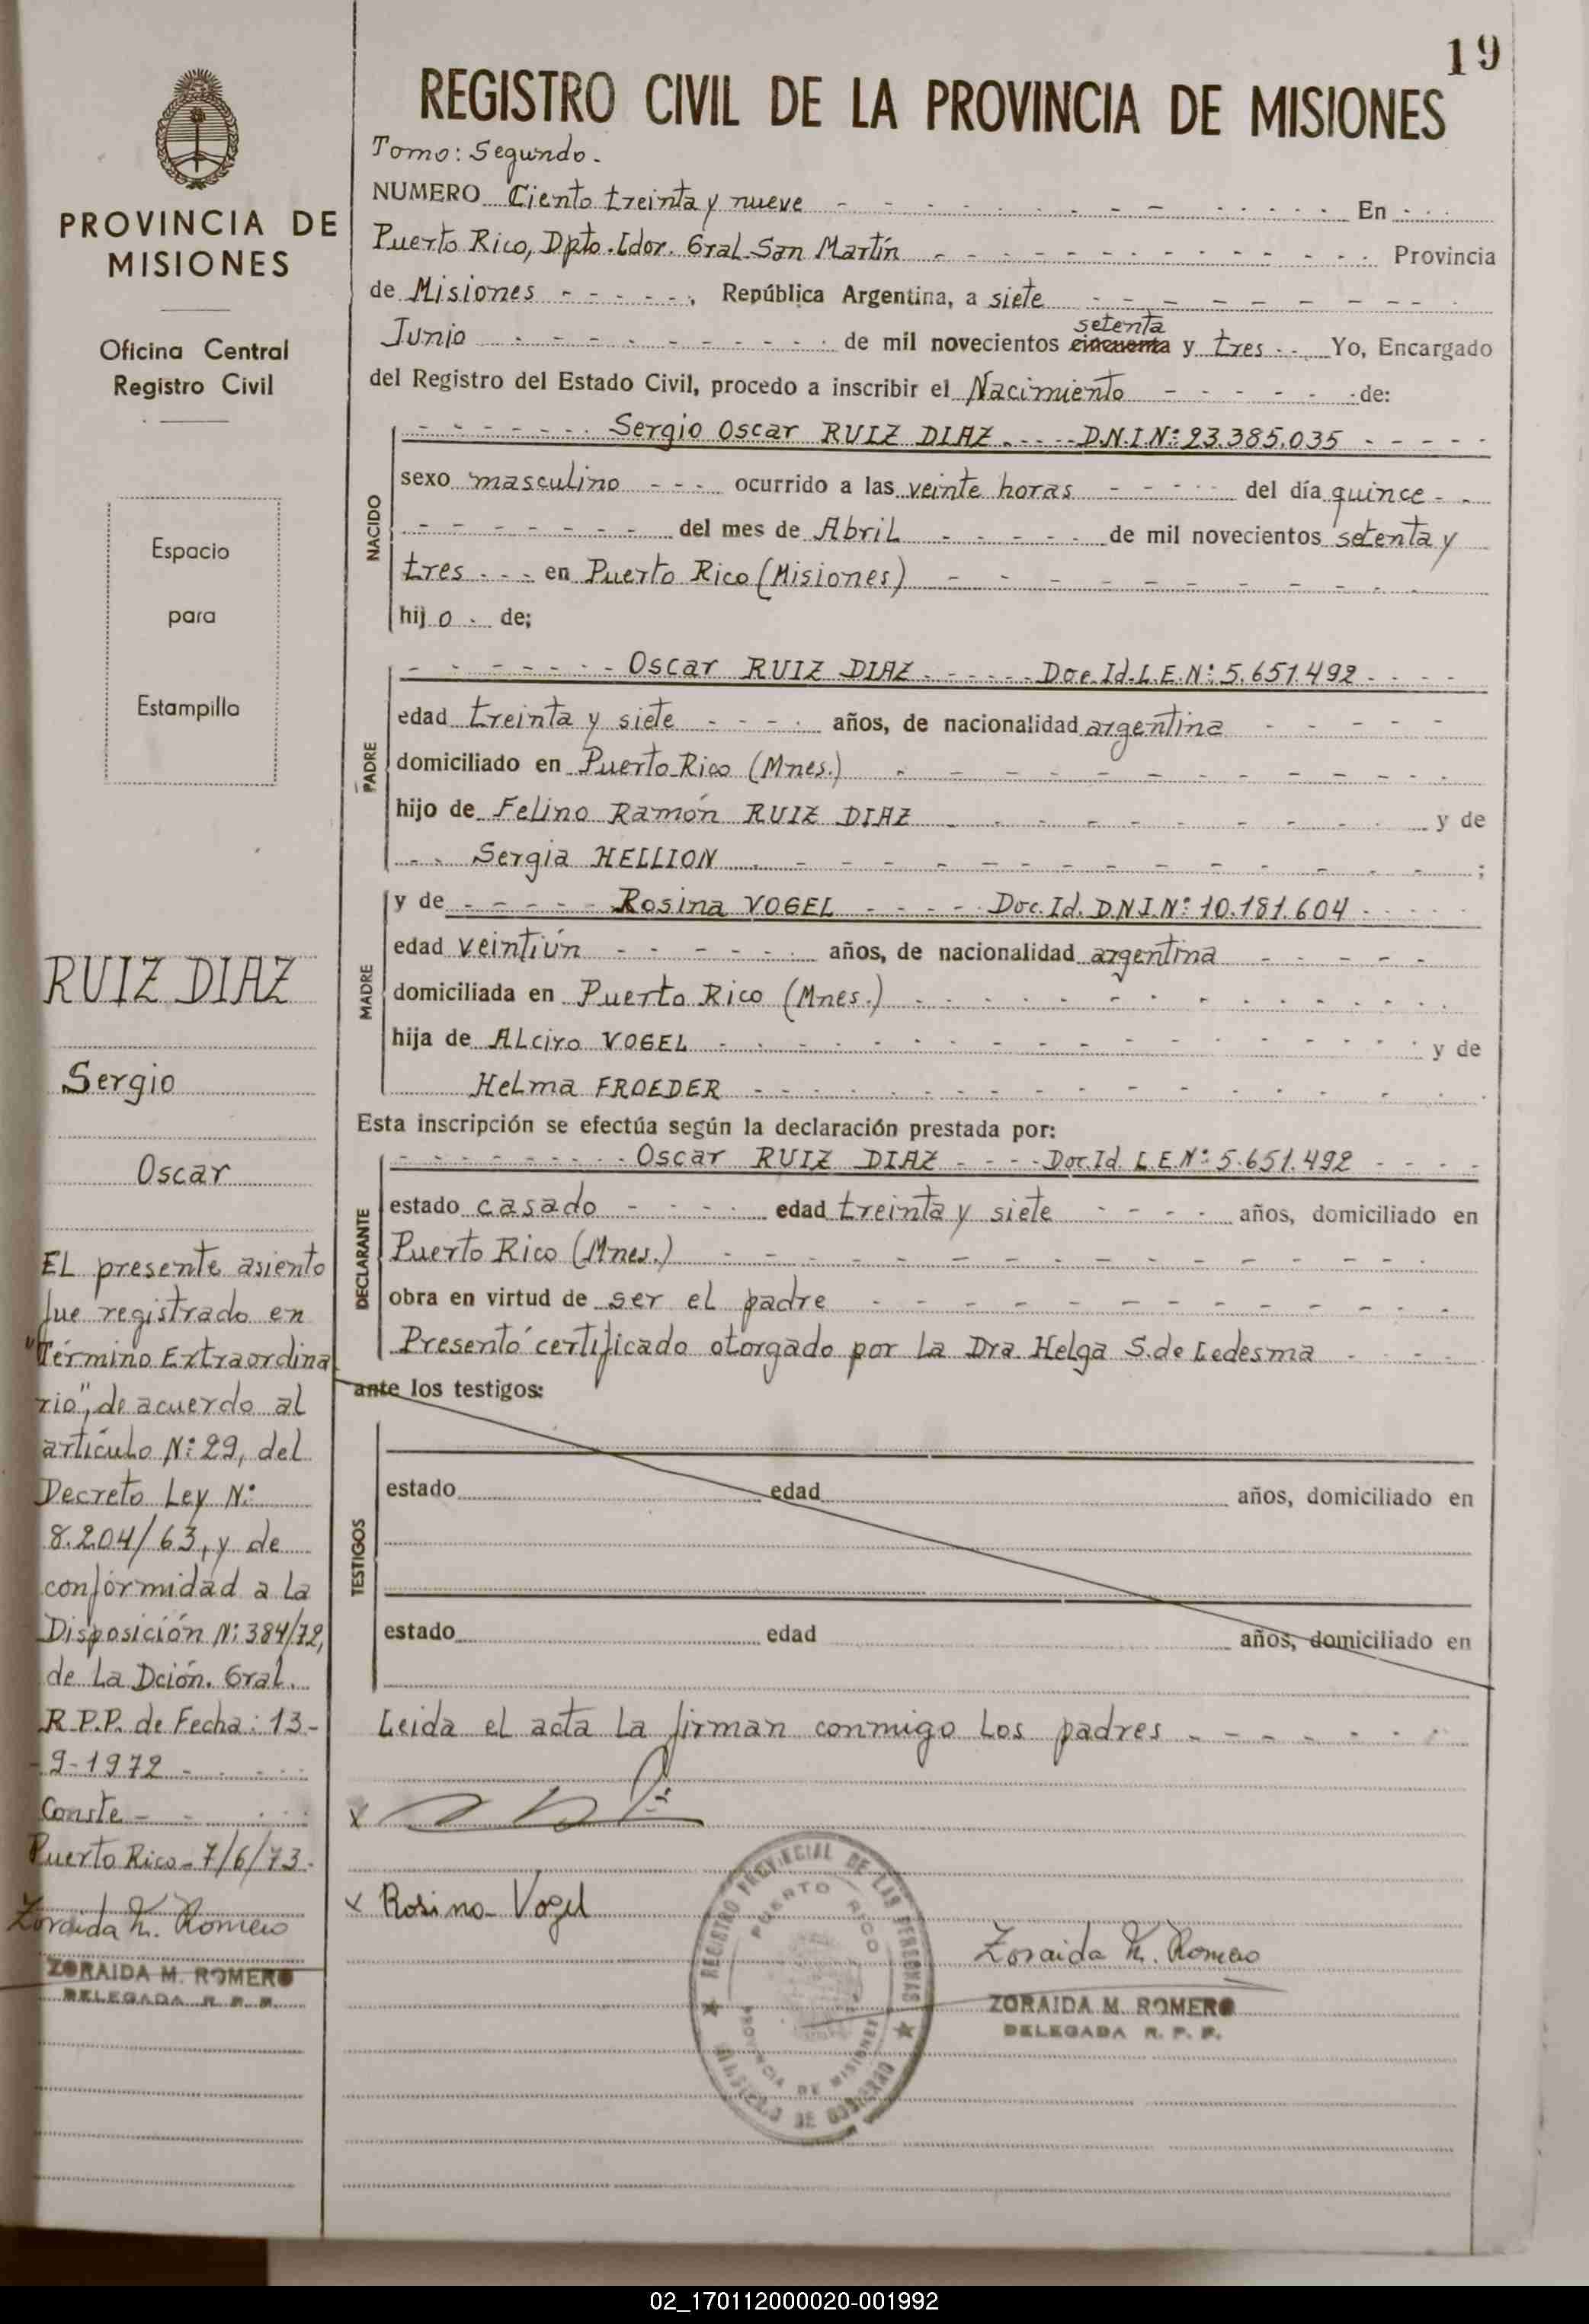 19
REGISTRO CIVIL DE LA PROVINCIA DE MISIONES
Tomo: Segundo.
NUMERO Ciento treinta y nueve - - - - - En - - -
Puerto Rico, Dpto. Ldor. Gral. San Martín - - - - - Provincia
de Misiones - - - - -, República Argentina, a siete - - - - -
Junio - - - - - de mil novecientos cincuenta setenta y tres - - Yo, Encargado
del Registro del Estado Civil, procedo a inscribir el Nacimiento - - - - - de:
NACIDO
- - - - - Sergio Oscar RUIZ DIAZ - - - - D.N.I.N: 23.385.035 - - - - -
sexo masculino - - - ocurrido a las veinte horas - - - - - del día quince - -
- - - - - del mes de Abril - - - - - de mil novecientos setenta y
tres - - - en Puerto Rico (Misiones) - - - - -
hijo - de;
PADRE
- - - - - Oscar RUIZ DIAZ - - - - - Doc. Id. L.E.N: 5.651.492 - - - -
edad treinta y siete - - - - años, de nacionalidad argentina - - - - -
domiciliado en Puerto Rico (Mnes.) - - - - -
hijo de Felino Ramón RUIZ DIAZ - - - - - y de
- - Sergia HELLION - - - - - ;
MADRE
y de - - - - - Rosina VOGEL - - - - - Doc. Id. D.N.I.N: 10.181.604 - - - -
edad veintiún - - - - - años, de nacionalidad argentina - - - - -
domiciliada en Puerto Rico (Mnes.) - - - - -
hija de ALciro VOGEL - - - - - y de
HeLma FROEDER - - - - -
Esta inscripción se efectúa según la declaración prestada por:
DECLARANTE
- - - - - Oscar RUIZ DIAZ - - - - Doc. Id. L.E.N: 5.651.492 - - - -
estado casado - - - - edad treinta y siete - - - - - años, domiciliado en
Puerto Rico (Mnes.) - - - - -
obra en virtud de ser el padre - - - - -
Presentó certificado otorgado por La Dra. Helga S. de Ledesma - - - -
ante los testigos:
TESTIGOS
estado edad años, domiciliado en
estado edad años, domiciliado en
Leida el acta La firman conmigo Los padres - - - - -
x
x Rosina Vogel
REGISTRO PROVINCIAL DE LAS PERSONAS
PUERTO RICO
PROVINCIA DE MISIONES
MINISTERIO DE GOBIERNO
Zoraida M. Romero
ZORAIDA M. ROMERO
DELEGADA R. P. P.
PROVINCIA DE
MISIONES
Oficina Central
Registro Civil
Espacio
para
Estampilla
RUIZ DIAZ
Sergio
Oscar
EL presente asiento
fue registrado en
"Término Extraordina
rio", de acuerdo al
artículo N: 29, del
Decreto Ley N:
8.204/63, y de
conformidad a La
Disposición N: 384/72,
de La Dción. Gral.
R.P.P. de Fecha: 13-
-9-1972 - - - -
Conste - - - -
Puerto Rico - 7/6/73.
Zoraida M. Romero
ZORAIDA M. ROMERO
DELEGADA R. P. P.
02_170112000020-001992